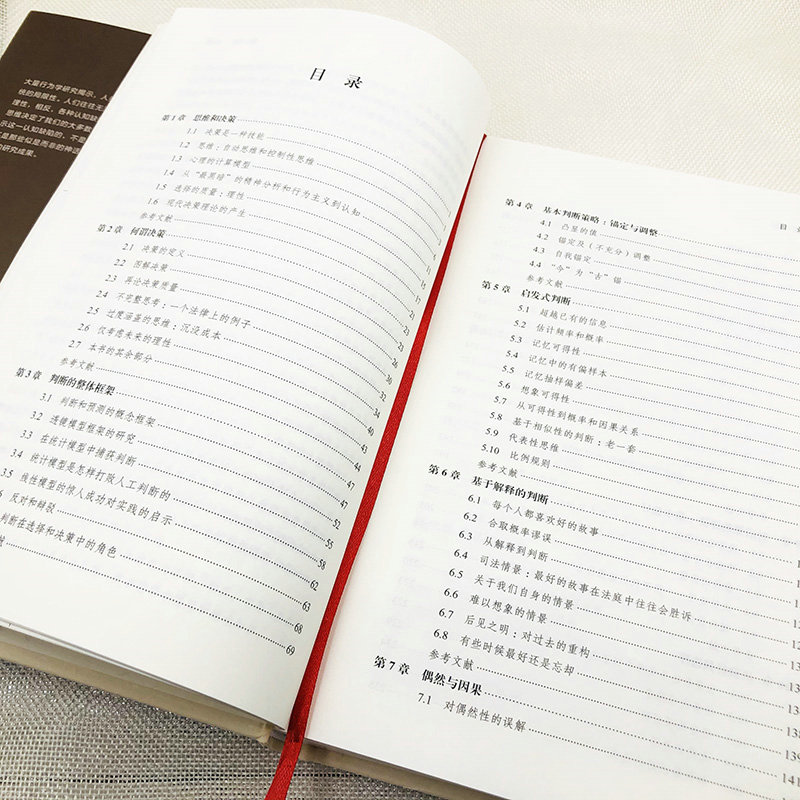 大量行为学研究揭示，人
统的局限性。人们往往无
理性，相反，各种认知缺
思维决定了我们的大多数
示这一认知缺陷的，不是
是那些似是而非的神
的研究成果。
目 录
第1章 思维和决策
1.1 决策是一种技能
1.2 思维：自动思维和控制性思维
1.3 心理的计算模型
1.4 从“最黑暗”的精神分析和行为主义到认知
1.5 选择的质量：理性
1.6 现代决策理论的产生
参考文献
第2章 何谓决策
2.1 决策的定义
2.2 图解决策
2.3 再论决策质量
2.4 不完整思考：一个法律上的例子
2.5 过度涵盖的思维：沉没成本
2.6 仅考虑未来的理性
2.7 本书的其余部分
参考文献
第3章 判断的整体框架
3.1 判断和预测的概念框架
3.2 透镜模型框架的研究
3.3 在统计模型中捕获判断
3.4 统计模型是怎样打败人工判断的
3.5 线性模型的惊人成功对实践的启示 58
6 反对和辩驳 62
判断在选择和决策中的角色 63
68
献 69
目 录
第4章 基本判断策略：锚定与调整
4.1 凸显的值
4.2 锚定及（不充分）调整
4.3 自我锚定
4.4 “今”为“古”锚
参考文献
第5章 启发式判断
5.1 超越已有的信息
5.2 估计频率和概率
5.3 记忆可得性
5.4 记忆中的有偏样本
5.5 记忆抽样偏差
5.6 想象可得性
5.7 从可得性到概率和因果关系
5.8 基于相似性的判断：老一套
5.9 代表性思维
5.10 比例规则
参考文献
第6章 基于解释的判断
6.1 每个人都喜欢好的故事
6.2 合取概率谬误
6.3 从解释到判断
6.4 司法情景：最好的故事在法庭中往往会胜诉
6.5 关于我们自身的情景
6.6 难以想象的情景
6.7 后见之明：对过去的重构
6.8 有些时候最好还是忘却
参考文献 138
第7章 偶然与因果 139
7.1 对偶然性的误解 141